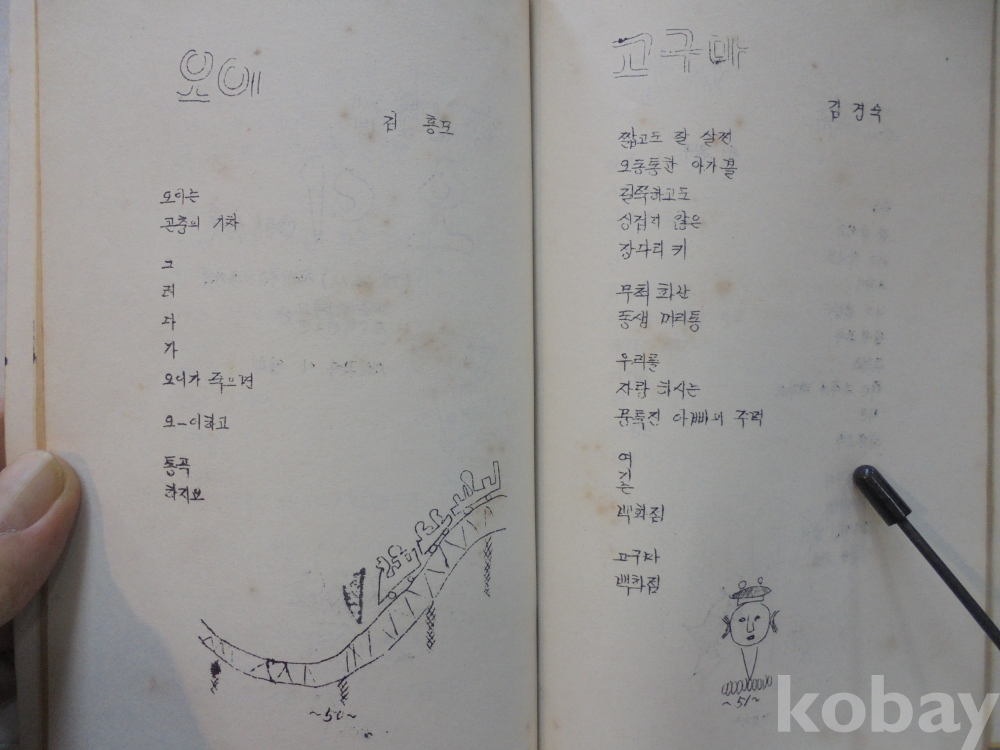 오이
김 홍도
오이는
곤충의 기차
그
러
다
가
오이가 죽으면
오―이하고
통곡
하지요
~50~
고구마
김 경숙
짧고도 잘 살찐
오동통한 아가꼴
길쭉하고도
싱겁지 않은
장다리 키
무척 화산
동생 머리통
우리를
자랑 하시는
뭉툭진 아빠의 주먹
여
긴
백화점
고구마
백화점
~51~
kobay